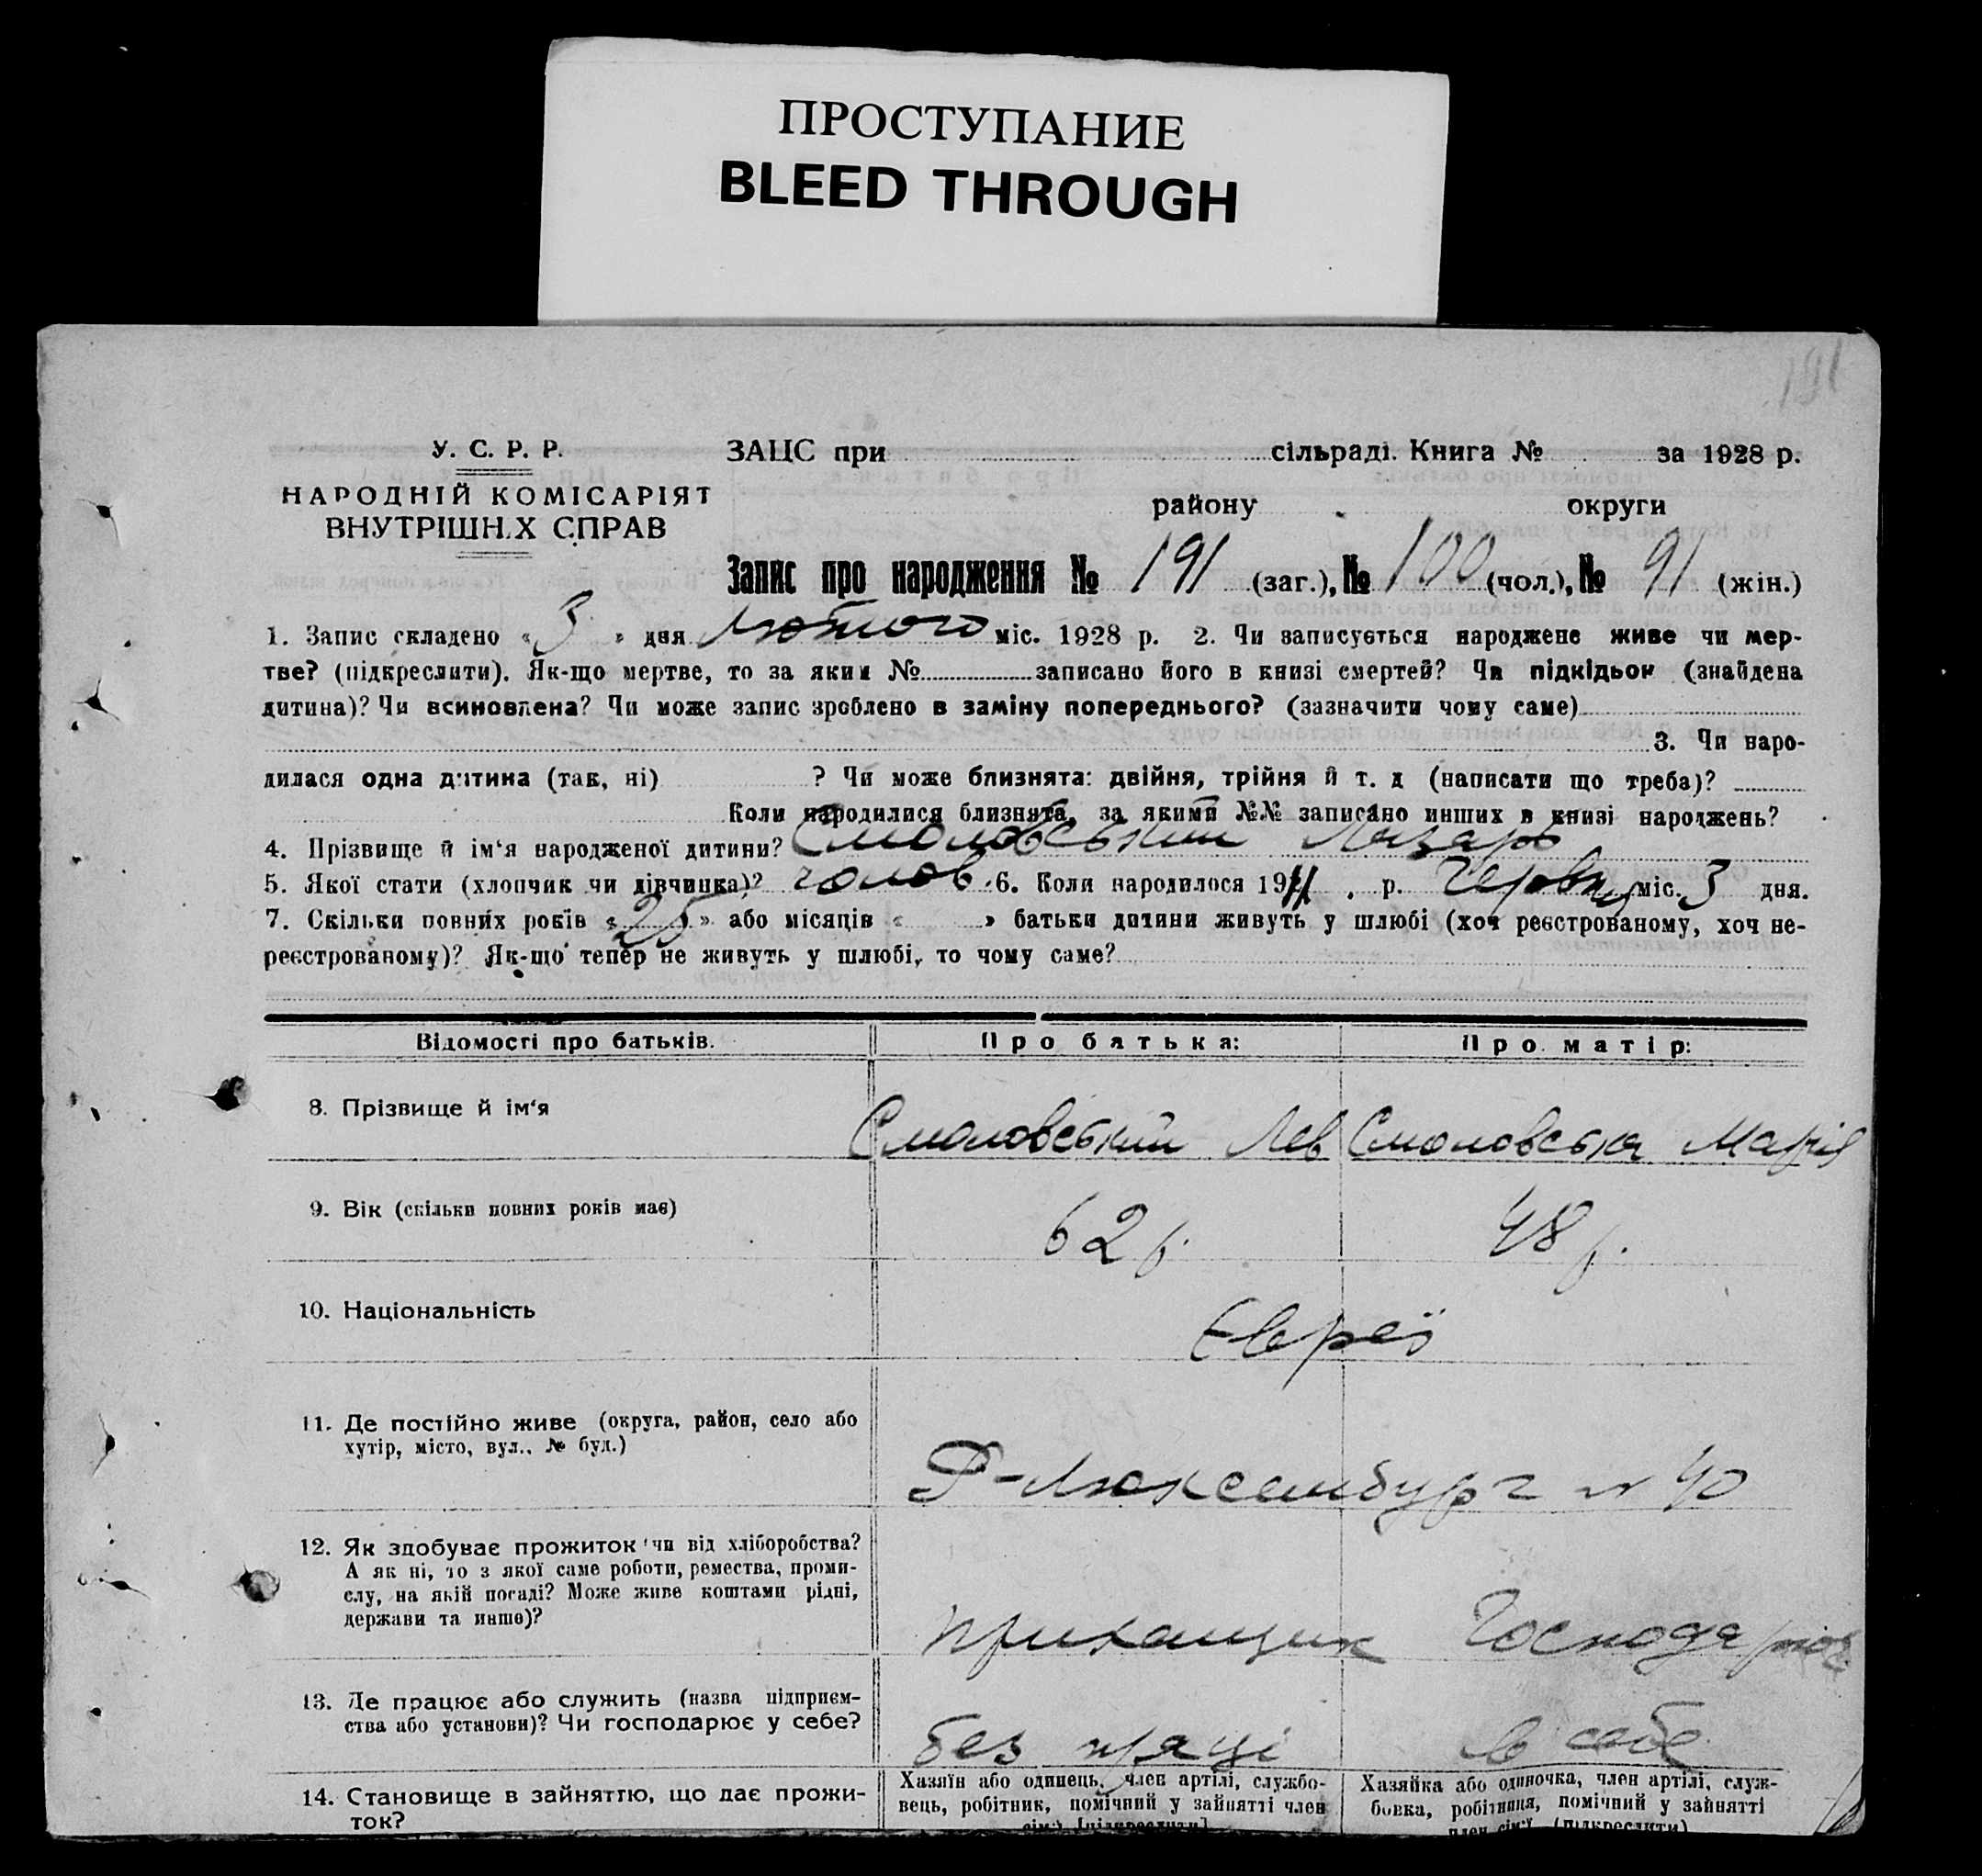 ПРОСТУПАНИЕ
BLEED THROUGH
191
У. С. Р. Р.
НАРОДНІЙ КОМІСАРІЯТ
ВНУТРІШН.Х СПРАВ
ЗАЦС при сільраді. Книга № за 1928 р.
району округи
Запис про народження № 191 (заг.), № 100 (чол.), № 91 (жін.)
1. Запис складено « 3 » дня лютого міс. 1928 р. 2. Чи записується народжене живе чи мер-
тве? (підкреслити). Як-що мертве, то за яким № записано його в книзі смертей? Чи підкідьок (знайдена
дитина)? Чи всиновлена? Чи може запис зроблено в заміну попереднього? (зазначити чому саме)
3. Чи наро-
дилася одна дитина (так, ні) ? Чи може близнята: двійня, трійня й т. д (написати що треба)?
Коли народилися близнята, за якими №№ записано инших в книзі народжень?
4. Прізвище й ім‘я народженої дитини? Смоловський Лазарь
5. Якої стати (хлопчик чи дівчинка)? чолов. 6. Коли народилося 19 р. Червня міс. 3 дня.
7. Скільки повних років « 25 » або місяців « » батьки дитини живуть у шлюбі (хоч реєстрованому, хоч не-
реєстрованому)? Як-що тепер не живуть у шлюбі, то чому саме?
Відомості про батьків. Про батька: Про матір:
8. Прізвище й ім‘я Смоловський Лев Смоловська Марія
9. Вік (скільки повних років має) 62 р. 48 р.
10. Національність Євреї
11. Де постійно живе (округа, район, село або
хутір, місто, вул., № буд.)
Р-Люксембург № 40
12. Як здобуває прожиток чи від хліборобства?
А як ні, то з якої саме роботи, ремества, проми-
слу, на якій посаді? Може живе коштами рідні,
держави та инше)?
прикащик
13. Де працює або служить (назва підприєм-
ства або установи)? Чи господарює у себе?
без праці в себе
14. Становище в зайняттю, що дає прожи-
ток?
Хазяїн або одинець, член артілі, службо-
вець, робітник, помічний у зайнятті член
сім‘ї [підкреслити]
Хазяйка або одиночка, член артілі, служ-
бовка, робітниця, помічний у зайнятті
член сім‘ї (підкреслити)